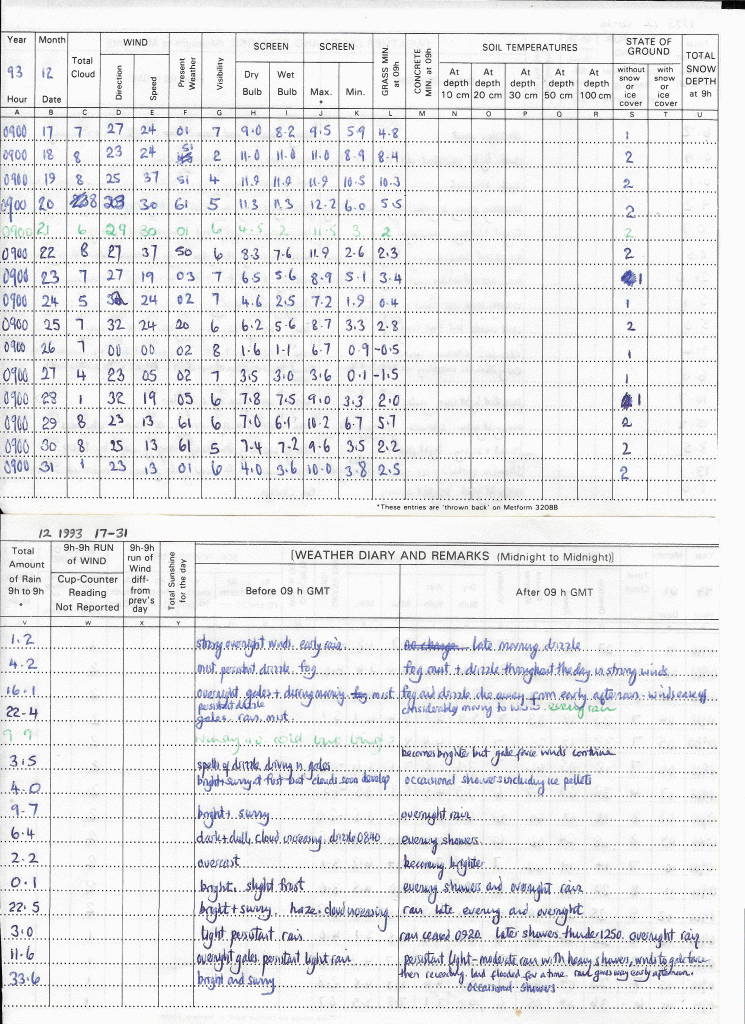 Year Month Total Cloud WIND Present Weather Visibility SCREEN SCREEN GRASS MIN. at 09h CONCRETE MIN. at 09h SOIL TEMPERATURES STATE OF GROUND TOTAL SNOW DEPTH at 9h
93 12 Direction Speed Dry Bulb Wet Bulb Max. * Min. At depth 10 cm At depth 20 cm At depth 30 cm At depth 50 cm At depth 100 cm without snow or ice cover with snow or ice cover
Hour Date
A B C D E F G H I J K L M N O P Q R S T U
0900 17 7 27 24 01 7 9.0 8.2 9.5 5.9 4.8 1
0900 18 8 23 24 51 2 11.0 11.0 11.0 8.9 8.4 2
0900 19 8 25 37 51 4 11.9 11.9 11.9 10.5 10.3 2
0900 20 8 23 30 61 5 11.3 11.3 12.2 6.0 5.5 2
0900 21 6 29 30 01 6 4.5 2 11.5 3 2 2
0900 22 8 27 37 50 6 8.3 7.6 11.9 2.6 2.3 2
0900 23 7 27 19 03 7 6.5 5.6 8.9 5.1 3.4 1
0900 24 5 24 02 7 4.6 2.5 7.2 1.9 0.4 1
0900 25 7 32 24 20 6 6.2 5.6 8.7 3.3 2.8 2
0900 26 7 00 00 02 8 1.6 1.1 6.7 0.9 -0.5 1
0900 27 4 23 05 02 7 3.5 3.0 3.6 0.1 -1.5 1
0900 28 1 32 19 05 6 7.8 7.5 9.0 3.3 2.0 1
0900 29 8 23 13 61 6 7.0 6.1 10.2 6.7 5.7 2
0900 30 8 25 13 61 5 7.4 7.2 9.6 3.5 2.2 2
0900 31 1 23 13 01 6 4.0 3.6 10.0 3.8 2.5 2
*These entries are 'thrown back' on Metform 3208B
12 1993 17-31
Total Amount of Rain 9h to 9h * 9h-9h RUN of WIND Cup-Counter Reading Not Reported 9h-9h run of Wind diff- from prev's day Total Sunshine for the day [WEATHER DIARY AND REMARKS (Midnight to Midnight)]
Before 09 h GMT After 09 h GMT
V W X Y
1.2 strong overnight winds early rain no change late morning drizzle
4.2 mist persistent drizzle fog fog mist + drizzle throughout the day in strong winds
16.1 overnight gales + driving morning fog mist fog and drizzle die away from early afternoon - winds ease off
persistent drizzle considerably evening rain
22.4 gales rain mist
9.9 windy
becomes brighter but gale force winds continue
3.5 spells of drizzle driving in gales
bright + sunny at first but clouds soon develop occasional showers including ice pellets
4.0
9.7 bright + sunny overnight rain
6.4 dark + dull, cloud increasing, drizzle 0840 evening showers
2.2 overcast becoming brighter
0.1 bright. slight frost evening showers and overnight rain
22.5 bright + sunny haze. cloud increasing rain late evening and overnight
3.0 light persistant rain rain ceased 0920. later showers thunder 1250. overnight rain
11.6 overnight gales persistant light rain persistant light-moderate rain with heavy showers, winds to gale force
then receding. land flooded for a time. rain gives way early afternoon.
33.6 bright and sunny occasional showers